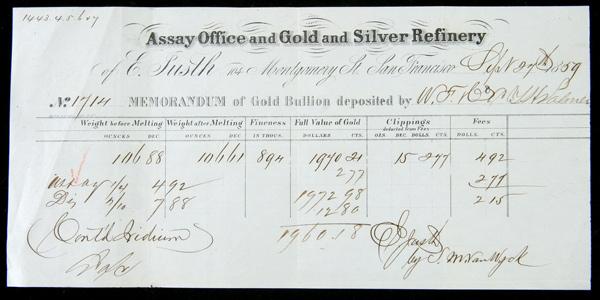 1443.4.5.6+7
Assay Office and Gold and Silver Refinery
of E. Justh 104 Montgomery St. San Francisco Sept 27th 1859
No. 1714 MEMORANDUM of Gold Bullion deposited by W. F. & Co
Weight before Melting Weight after Melting Fineness Full Value of Gold Clippings Fees
deducted from Fees
OUNCES DEC. OUNCES DEC. IN THOUS. DOLLARS CTS. OZS. DEC. DOLLS. CTS. DOLLS. CTS.
106 88 106 61 894 1970 21 15 277 492
277 277
4 92 1972 98 215
7 88 12 80
Conth Iridium 1960.18 E Justh
by S. M Van Wyck